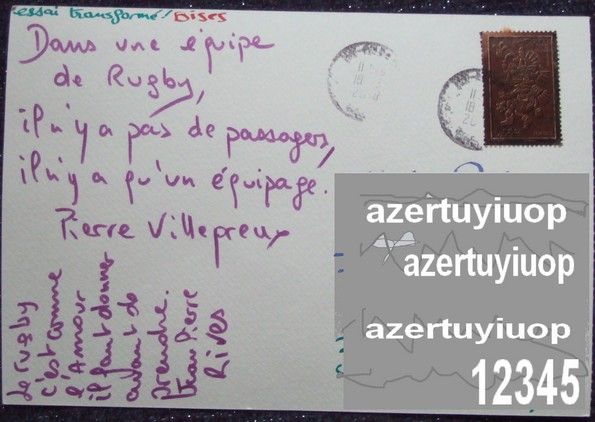 essai transformé! BISES
Dans une équipe
de Rugby,
il n'y a pas de passagers,
il n'y a qu'un équipage.
Pierre Villepreux
Le rugby
c'est comme
l'Amour
il faut donner
avant de
prendre.
Jean Pierre
Rives
azertuyiuop
azertuyiuop
azertuyiuop
12345